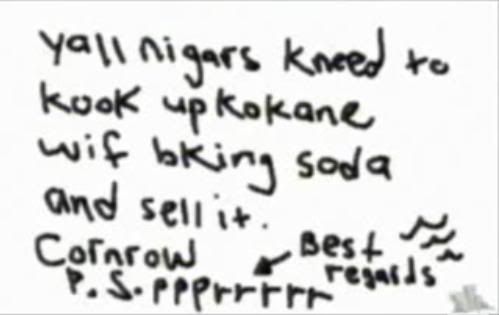 yall nigars kneed to
kook up kokane
wif bking soda
and sell it.
Cornrow
P.S. ppprrrrr
Best
regards